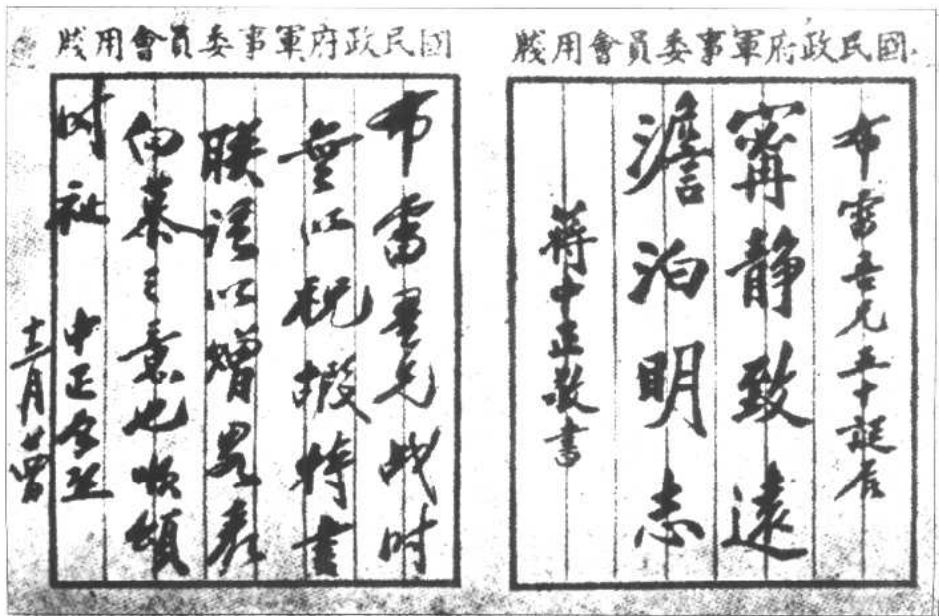 國民政府軍事委員會用牋
布雷吾兄五十誕辰
寧靜致遠
澹泊明志
蔣中正敬書
國民政府軍事委員會用牋
布雷吾兄战时
無以祝嘏特書
联语以赠略表
向慕之意也顺頌
时祉 中正
十二月